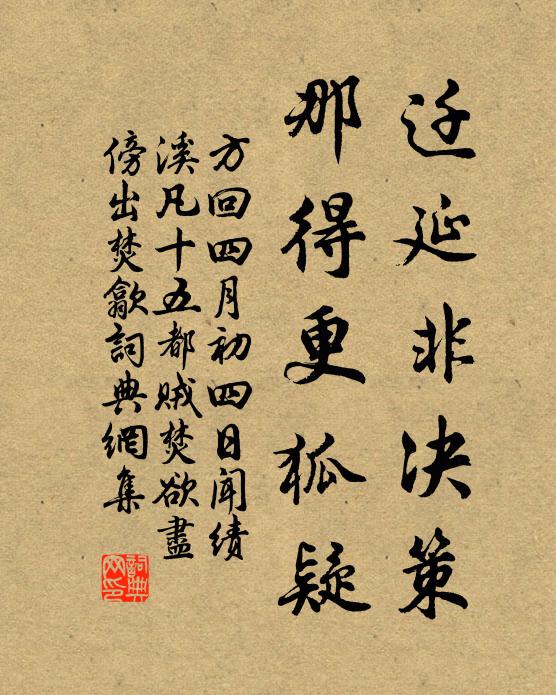 迁延非决策
那得更狐疑
方回四月初四日闻绩
溪凡十五都贼焚欲盡
傍出焚歙詞典網集
詞典網印